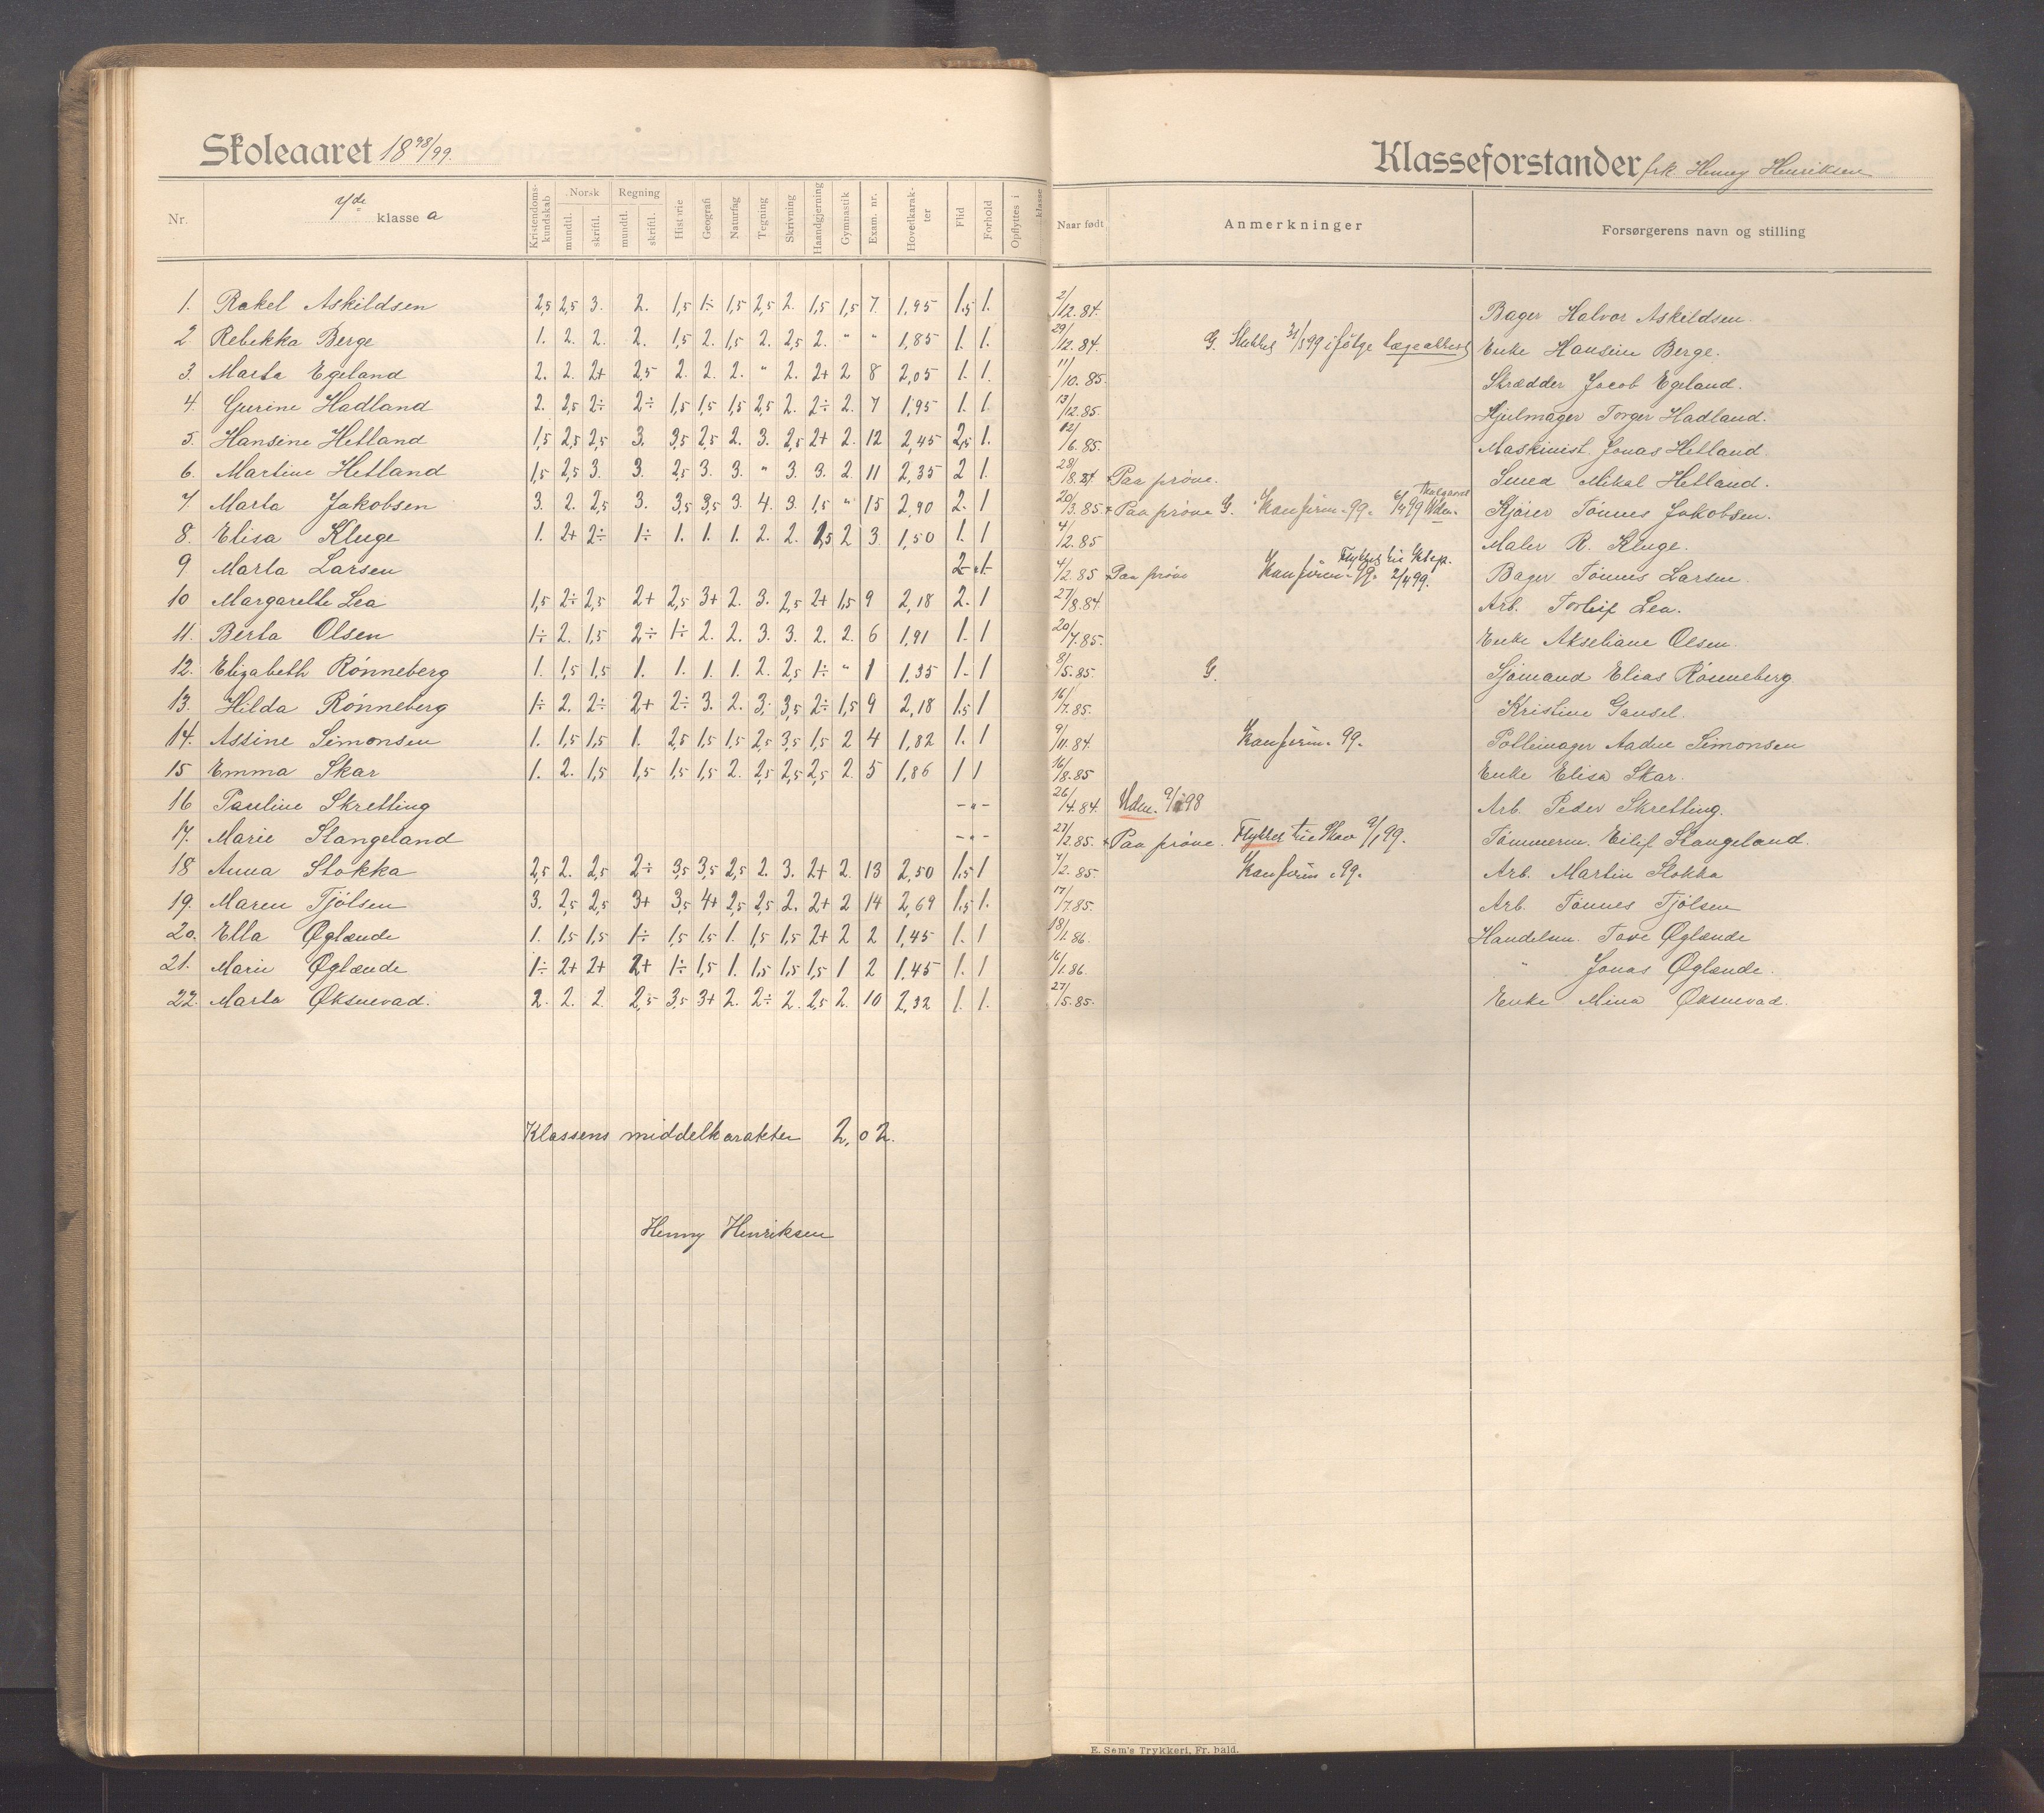 Skoleaaret 1898/99.
Klasseforstander frk. Henny Henriksen
Nr. 7de klasse a Kristendomskundskab Norsk mundtl. skriftl. Regning mundtl. skriftl. Historie Geografi Naturfag Tegning Skrivning Haandgjerning Gymnastik Exam. nr. Hovedkarakter Flid Forhold Opflyttes i klasse Naar født Anmerkninger Forsørgerens navn og stilling
1. Rakel Askildsen 2,5 2,5 3. 2. 1,5 1÷ 1,5 2,5 2. 1,5 1,5 7. 1,95 1,5 1. 2/12.84. Bager Halvor Askildsen.
2 Rebekka Berge 1. 2. 2. 2. 1,5 2. 1,5 2. 2,5 2. " " 1,85 1. 1. 29/12.84. G. Sluttet 31/5 99 ifølge lægeattest Enke Hansine Berge.
3. Marta Egeland 2. 2. 2+ 2,5 2. 2. 2. " 2. 2+ 2 8 2,05 1. 1. 11/10.85. Skrædder Jacob Egeland.
4. Gurine Hadland 2. 2,5 2÷ 2÷ 1,5 1,5 1,5 2,5 2. 2÷ 2. 7 1,95 1. 1. 13/12.85. Hjulmager Torger Hadland.
5. Hansine Hetland 1,5 2,5 2,5 3. 3,5 2,5 2. 3. 2,5 2+ 2. 12 2,45 2,5 1. 12/6.85. Maskinist Jonas Hetland.
6. Martine Hetland 1,5 2,5 3. 3. 2,5 3. 3. " 3. 3. 2 11 2,35 2 1. 28/8.84 + Paa prøve. Smed Mikal Hetland.
7 Marta Jakobsen 3. 2. 2,5 3. 3,5 3,5 3. 4. 3. 1,5 " 15 2,90 2. 1 20/3.85 + Paa prøve G. Konfirm. 99. Udm. Kjører Tønnes Jakobsen.
8. Elisa Kluge 1. 2+ 2÷ 1÷ 1. 1. 1. 2. 2. 2,5 2 3 1,50 1. 1 4/2.85 Maler R. Kluge.
9 Marta Larsen 2 - " - 1 4/2.85 + Paa prøve Konfirm. 99. Flyttet til 2/4 99. Bager Tønnes Larsen.
10 Margarethe Lea 1,5 2÷ 2,5 2+ 2,5 3+ 2. 3. 2,5 2+ 1,5 9 2,18 2. 1 27/8.84. Arb. Torleif Lea.
11. Berta Olsen 1÷ 2. 1,5 2÷ 1÷ 2. 2. 3. 3. 2. 2. 6 1,91 1. 1 20/7.85. Enke Akseliane Olsen.
12. Elizabeth Rønneberg 1. 1,5 1,5 1. 1. 1. 1. 2. 2,5 1÷ " 1 1,35 1. 1 8/5.85. G. Sjømand Elias Rønneberg.
13. Hilda Rønneberg 1÷ 2. 2÷ 2+ 2÷ 3. 2. 3. 3,5 2÷ 1,5 9 2,18 1,5 1 16/7.85. Kristine Gausel.
14. Assine Simonsen 1. 1,5 1,5 1. 2,5 1,5 1,5 2,5 3,5 1,5 2 4 1,82 1. 1 9/11.84. Konfirm. 99. Pottemager Aadne Simonsen
15 Emma Skar 1. 2. 1,5 1,5 1,5 1,5 2. 2,5 2,5 2,5 2. 5 1,86 1 1 16/8.85 Enke Elisa Skar.
16 Pauline Skretting - " - 26/4.84. Udm. 98 Arb. Peder Skretting.
17. Marie Stangeland - " - 27/2.85. + Paa prøve. Flyttet til 9/1 99. Tømmerm. Eilef Stangeland.
18 Anna Stokka 2,5 2. 2,5 2÷ 3,5 3,5 2,5 2. 3. 2+ 2. 13 2,50 1,5 1 7/2.85. Konfirm. 99. Arb. Martin Stokka
19. Maren Tjølsen 3. 2,5 2,5 3+ 3,5 4+ 2,5 2,5 2. 2+ 2 14 2,69 1,5 1. 17/7.85. Arb. Tønnes Tjølsen
20. Ella Øglænde 1. 1,5 1,5 1÷ 1,5 1,5 1. 1,5 1,5 2+ 2 2 1,45 1. 1 18/1.86. Handelsm. Tore Øglænde
21. Marie Øglænde 1÷ 2+ 2+ 2+ 1÷ 1,5 1. 1,5 1,5 1,5 1 2 1,45 1. 1 16/1.86. " Jonas Øglænde.
22. Marta Øksnevad. 2. 2. 2. 2,5 3,5 3+ 2. 2÷ 2. 2,5 2. 10 2,32 1. 1. 27/5.85. Enke Mina Øksnevad.
Klassens middelkarakter 2,02.
Henny Henriksen
E. Sem's Trykkeri, Fr.hald.